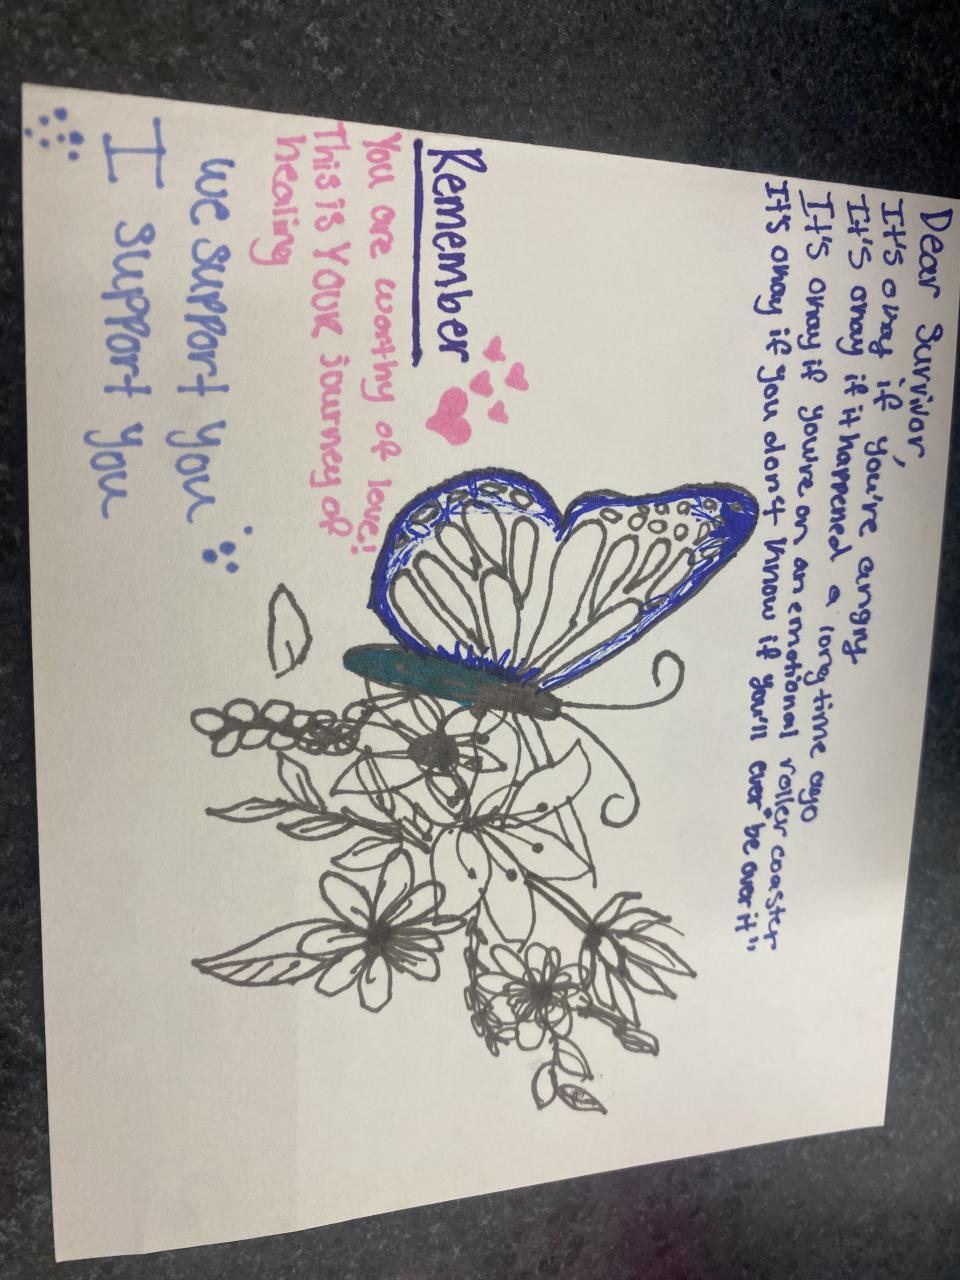 Dear Survivor,
It's okay if you're angry
It's okay if it happened a long time ago
It's okay if youre on an emotional roller coaster
It's okay if you don't know if you'll ever "be over it"
Remember
You are worthy of love!
This is YOUR journey of
healing
we support you
I support you